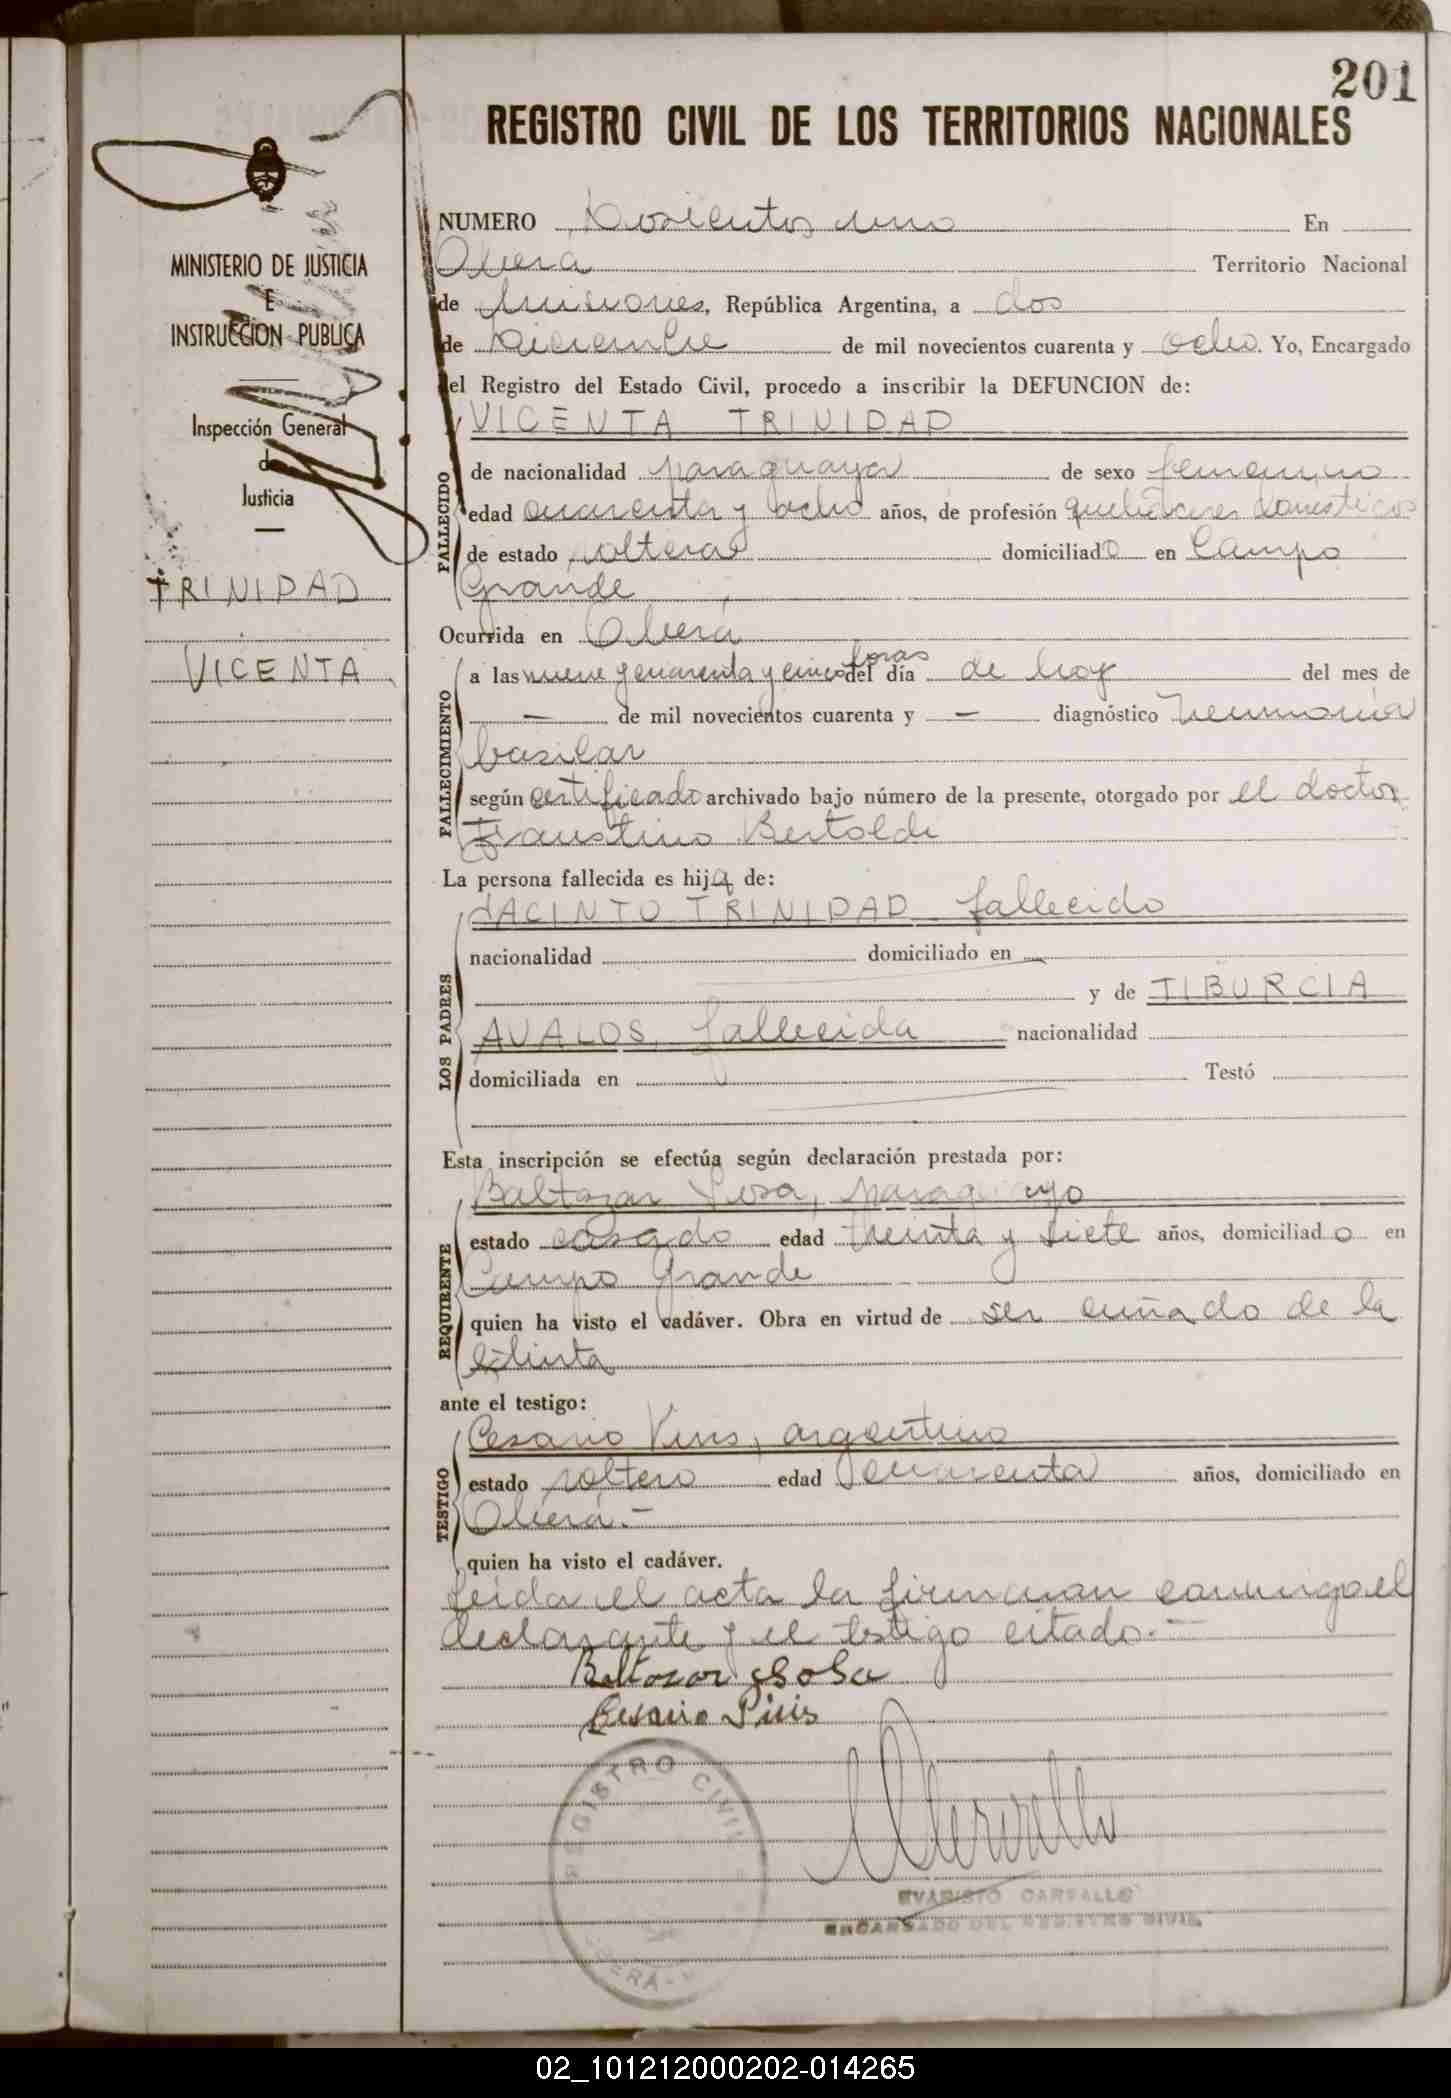 201
REGISTRO CIVIL DE LOS TERRITORIOS NACIONALES
MINISTERIO DE JUSTICIA
E
INSTRUCCION PUBLICA
Inspección General
de
Justicia
TRINIDAD
VICENTA
NUMERO Doscientos uno En
Oberá Territorio Nacional
de Misiones, República Argentina, a dos
de Diciembre de mil novecientos cuarenta y ocho. Yo, Encargado
del Registro del Estado Civil, procedo a inscribir la DEFUNCION de:
VICENTA TRINIDAD
FALLECIDO
de nacionalidad paraguaya de sexo femenino
edad cuarenta y ocho años, de profesión quehaceres domesticos
de estado soltera domiciliada en Campo
Grande
Ocurrida en Oberá
FALLECIMIENTO
a las nueve y cuarenta y cinco horas del día de hoy del mes de
— de mil novecientos cuarenta y — diagnóstico neumonía
basilar
según certificado archivado bajo número de la presente, otorgado por el doctor
Faustino Bertoldi
La persona fallecida es hija de:
LOS PADRES
JACINTO TRINIDAD fallecido
nacionalidad domiciliado en
y de TIBURCIA
AVALOS, fallecida nacionalidad
domiciliada en Testó
Esta inscripción se efectúa según declaración prestada por:
REQUIRENTE
Baltazar Sosa, paraguayo
estado casado edad treinta y siete años, domiciliado en
Campo Grande
quien ha visto el cadáver. Obra en virtud de ser cuñado de la
extinta
ante el testigo:
TESTIGO
Cesario, argentino
estado soltero edad cuarenta años, domiciliado en
Oberá.—
quien ha visto el cadáver.
Leida el acta la firman conmigo el
declarante y el testigo citado.—
Baltazar Sosa
Cesario
REGISTRO CIVIL
OBERA
EVARISTO CARVALLO
ENCARGADO DEL REGISTRO CIVIL
02_101212000202-014265